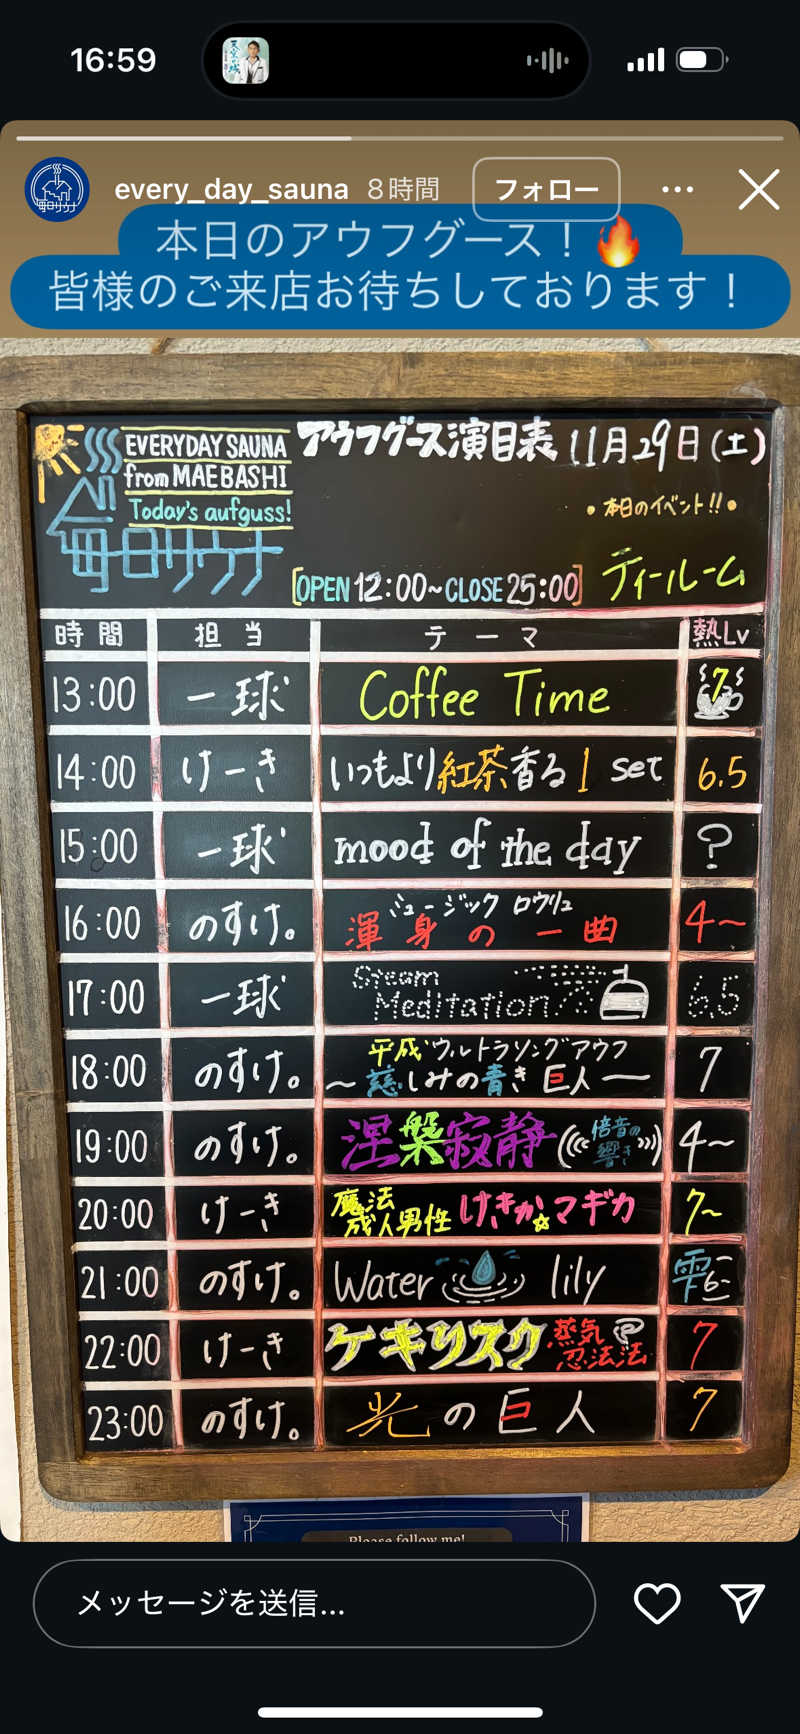 16:59
every_day_sauna 8時間 フォロー
本日のアウフグース！🔥
皆様のご来店お待ちしております！
EVERYDAY SAUNA
from MAEBASHI
Today's aufguss!
毎日サウナ
アウフグース演目表 11月29日(土)
•本日のイベント!!•
ティールーム
[OPEN 12:00~CLOSE 25:00]
時間 担当 テーマ 熱Lv
13:00 一球 Coffee Time 7
14:00 けーき いつもより紅茶香る1 set 6.5
15:00 一球 mood of the day ?
16:00 のすけ。 ミュージックロウリュ 渾身の一曲 4~
17:00 一球 Steam Meditation 6.5
18:00 のすけ。 平成ウルトラソングアウフ ~慈しみの青き巨人― 7
19:00 のすけ。 涅槃寂静(((倍音の響き))) 4~
20:00 けーき 魔法成人男性 けきか☆マギカ 7~
21:00 のすけ。 Water lily 雫6-
22:00 けーき ケキリスク 蒸気忍法法 7
23:00 のすけ。 光の巨人 7
Please follow me!
メッセージを送信...